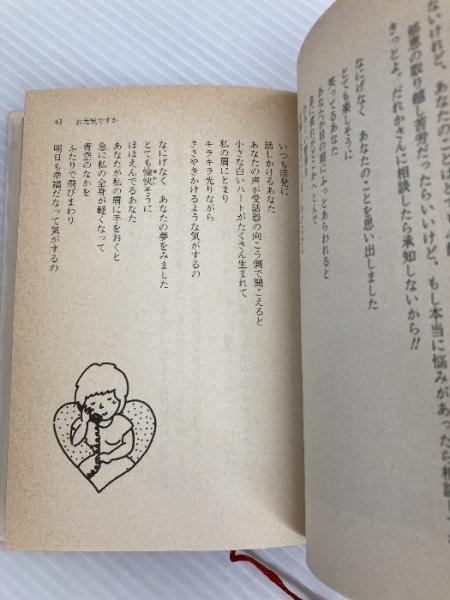 ないけれど、あなたのことはとても
都恵の取り越し苦労だったらいいけど、もし本当に悩みがあったら相談して
きっとよ。だれかさんに相談したら承知しないから!!
なにげなく　あなたのことを思い出しました
とても楽しそうに
笑ってるあなた
あなたが目の前にふっとあらわれると
43　お元気ですか
いつも活発に
話しかけるあなた
あなたの声が受話器の向こう側で聞こえると
小さな白いハートがたくさん生まれて
私の肩にとまり
キラキラ光りながら
ささやきかけるような気がするの
なにげなく　あなたの夢をみました
とても愉快そうに
ほほえんでるあなた
あなたが私の肩に手をおくと
急に私の全身が軽くなって
青空のなかを
ふたりで飛びまわり
明日も幸福だなって気がするの